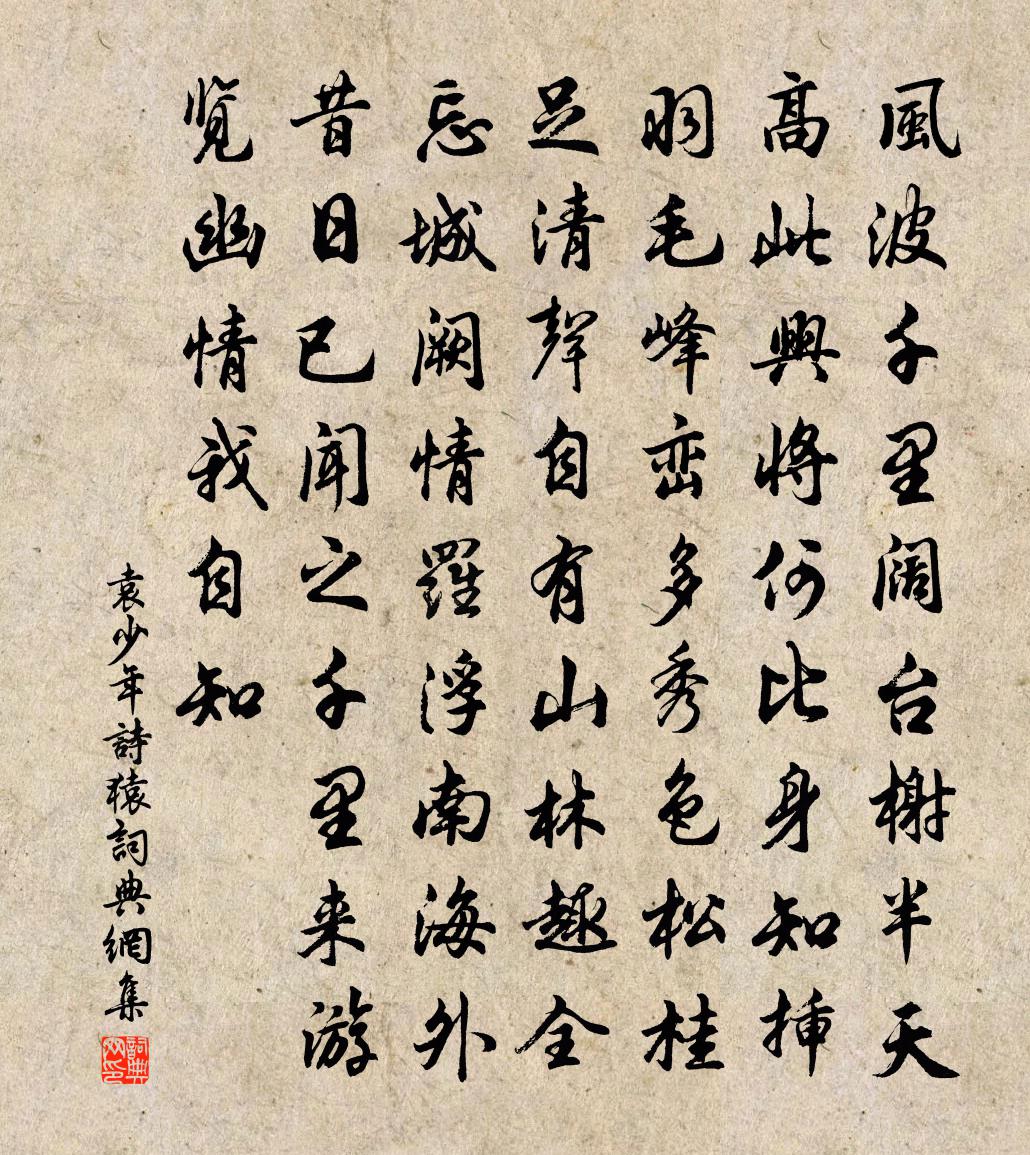 風波千里闊台榭半天
高此興將何比身知插
羽毛峰峦多秀色松桂
足清聲自有山林趣全
忘城闕情羅浮南海外
昔日已聞之千里来游
览幽情我自知
袁少年詩猿詞典網集
詞典网印